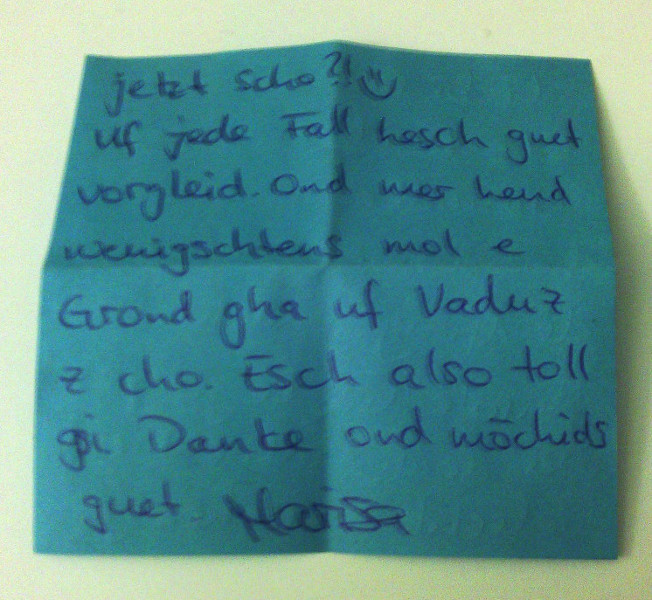 jetzt scho?! :)
Uf jede Fall hesch guet
vorgleid. Ond mer hend
wenigschtens mol e
Grond gha uf Vaduz
z cho. Esch also toll
gsi Danke ond mächids
guet. Marisa